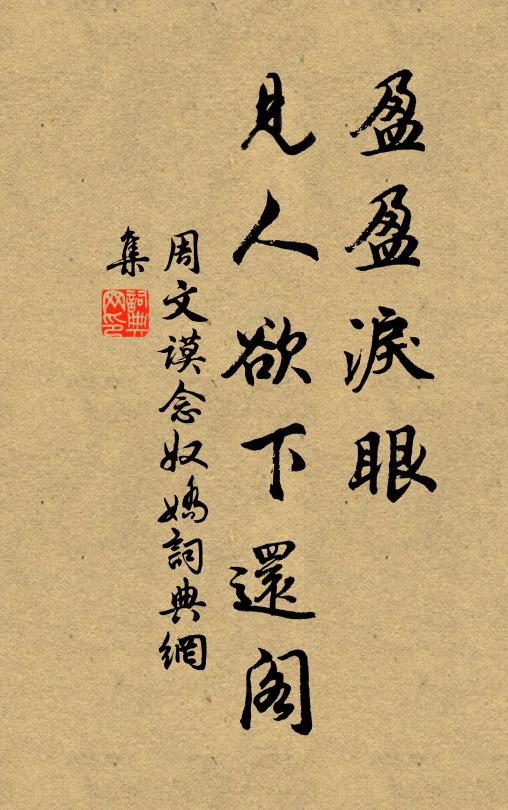 盈盈淚眼
見人欲下還阁
周文谟念奴嬌詞典網
集
詞典
网印